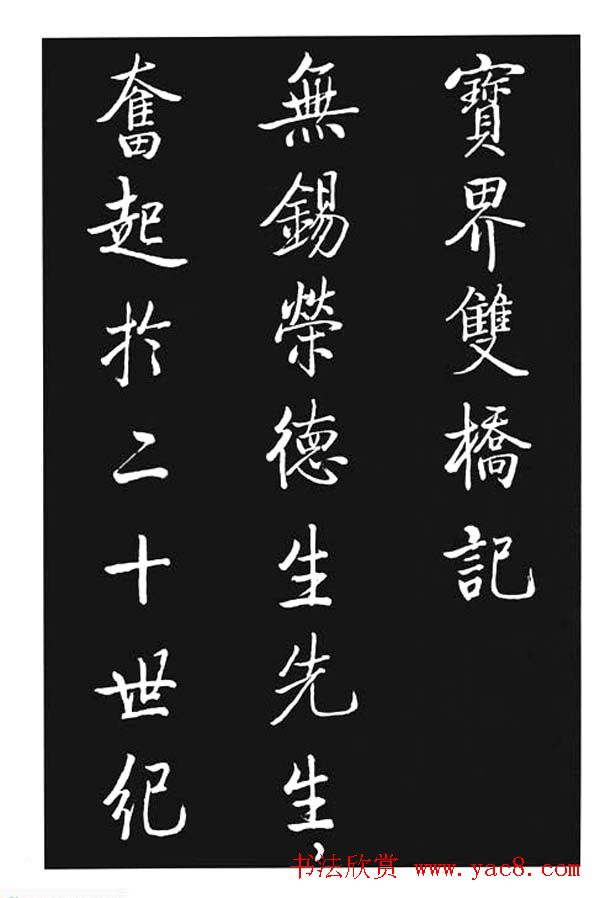 寶界雙橋記
無錫榮德生先生，
奮起於二十世紀
书法欣赏 www.yac8.com